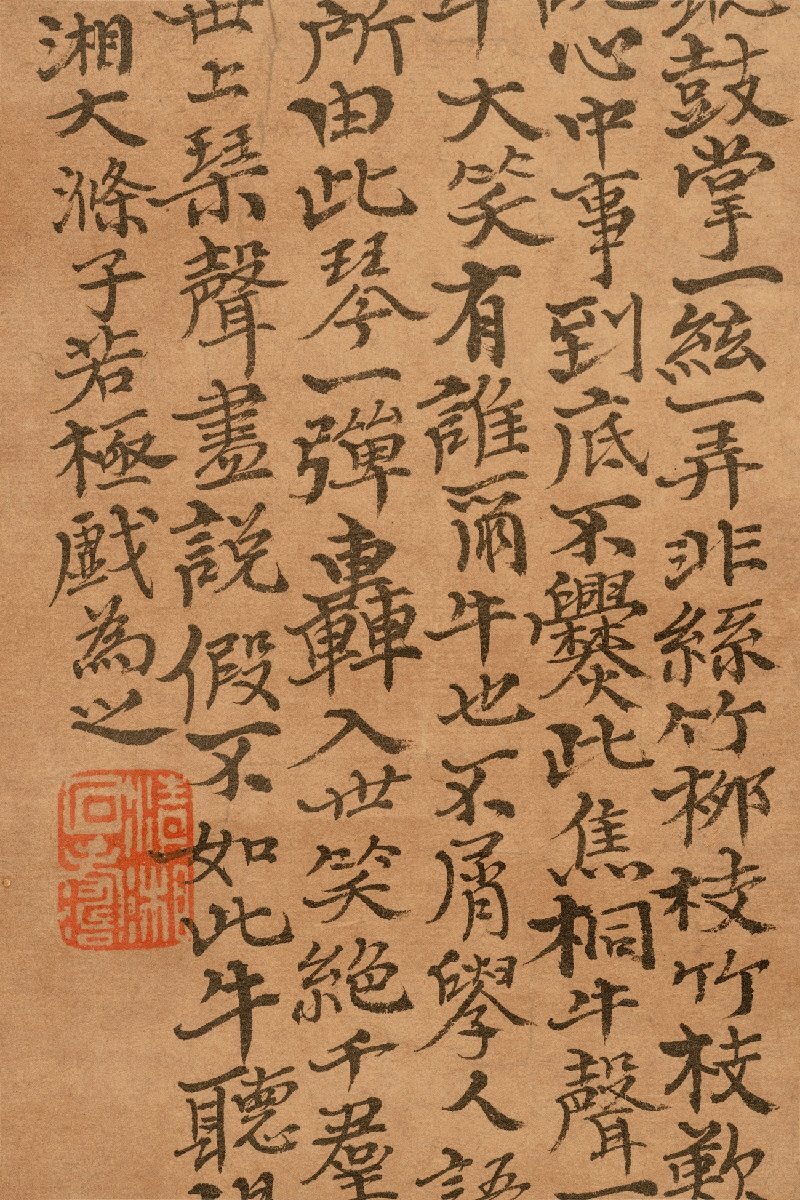 鼓掌一絃一弄非絲竹柳枝竹枝歎
心中事到底不爨此焦桐牛聲一
牛大笑有誰爾牛也不屑學人語
所由此琴一彈轟入世笑絕千羣
世上琴聲盡說假不如此牛聽
湘大滌子若極戲為之
清湘
石濤